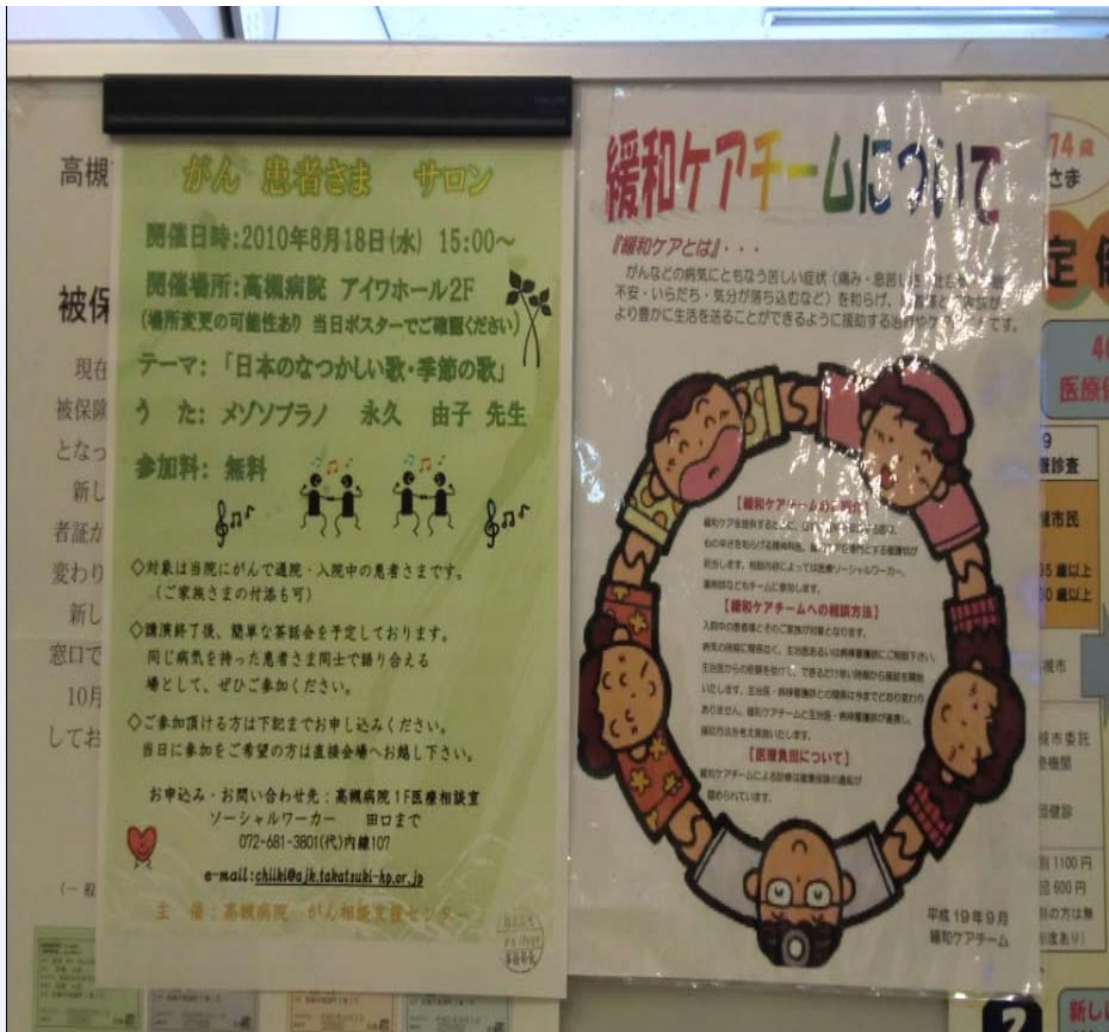 がん 患者さま サロン
開催日時:2010年8月18日(水) 15:00～
開催場所:高槻病院 アイワホール2F
(場所変更の可能性あり 当日ポスターでご確認ください)
テーマ: 「日本のなつかしい歌・季節の歌」
う た: メゾソプラノ 永久 由子 先生
参加料: 無料
◇対象は当院にがんで通院・入院中の患者さまです。
(ご家族さまの付添も可)
◇講演終了後、簡単な茶話会を予定しております。
同じ病気を持った患者さま同士で語り合える
場として、ぜひご参加ください。
◇ご参加頂ける方は下記までお申し込みください。
当日に参加をご希望の方は直接会場へお越し下さい。
お申込み・お問い合わせ先:高槻病院1F医療相談室
ソーシャルワーカー 田口まで
072-681-3801(代)内線107
e-mail:chiiki@ajk.takatsuki-hp.or.jp
主 催:高槻病院 がん相談支援センター
緩和ケアチームについて
『緩和ケアとは』・・・
がんなどの病気にともなう苦しい症状(痛み・息苦しさ・
不安・いらだち・気分が落ち込むなど)を和らげ、
より豊かに生活を送ることができるように援助する
【緩和ケアチームのご紹介】
緩和ケアを提供するために、
心の辛さを和らげる精神科医、
担当します。相談内容によっては医療ソーシャルワーカー、
薬剤師などもチームに参加します。
【緩和ケアチームへの相談方法】
入院中の患者様とそのご家族が対象となります。
病気の時期に関係なく、主治医あるいは病棟看護師にご相談下さい。
主治医からの依頼を受けて、できるだけ早い時期から援助を開始
いたします。主治医・病棟看護師との関係は今までどおり変わり
ありません。緩和ケアチームと主治医・病棟看護師が連携し、
援助方法を考え実施いたします。
【医療負担について】
緩和ケアチームによる診療は健康保険の適応が
認められています。
平成19年9月
緩和ケアチーム
高槻
被保
現在
被保険
となっ
新し
者証が
変わり
新し
窓口で
10月
してお
(一般
74歳
さま
定健
医療
診査
市民
35歳以上
0歳以上
市
市委託
機関
健診
1100円
600円
の方は無
度あり)
新し
2